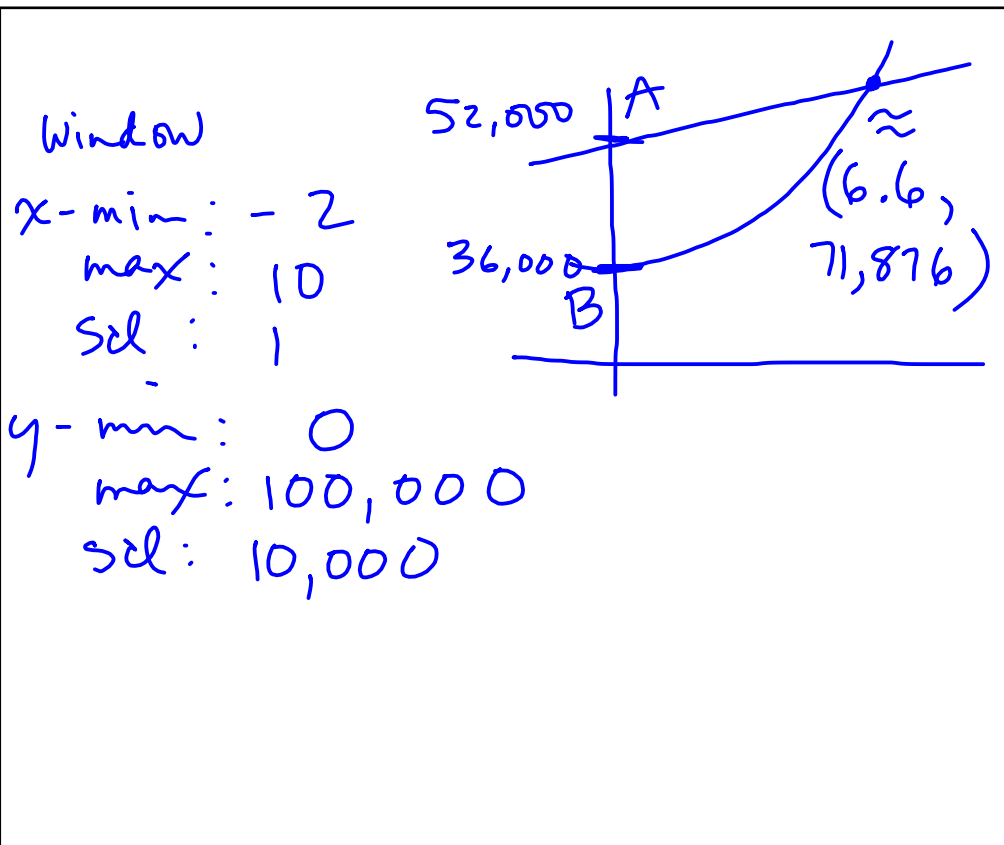 Window
x-min: -2
max: 10
scl: 1
y-min: 0
max: 100,000
scl: 10,000
52,000 A
36,000
B
≈
(6.6,
71,876)